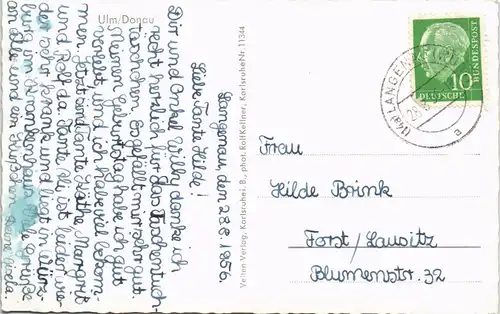 Ulm/Donau
Langenau, den 22.8.1956.
Liebe Tante Hilde!
Dir und Onkel Willy danke ich
recht herzlich für das Taschentuch-
täschchen. Es gefällt mir sehr gut.
Meinen Geburtstag habe ich gut
verlebt, und ich habe viel bekom-
men. Jetzt sind Tante Käthe, Margrit
und Rolf da. Tante Eli ist leider wie-
der sehr krank und liegt in Würz-
burg im Krankenhaus. Viele Grüße
Velten Verlag, Karlsruhe i. B., phot. Rolf Kellner, Karlsruhe Nr. 11344
DEUTSCHE
BUNDESPOST
10
(14a) LANGENAU
a
Frau
Hilde Brink
Forst/Lausitz
Blumenstr. 32